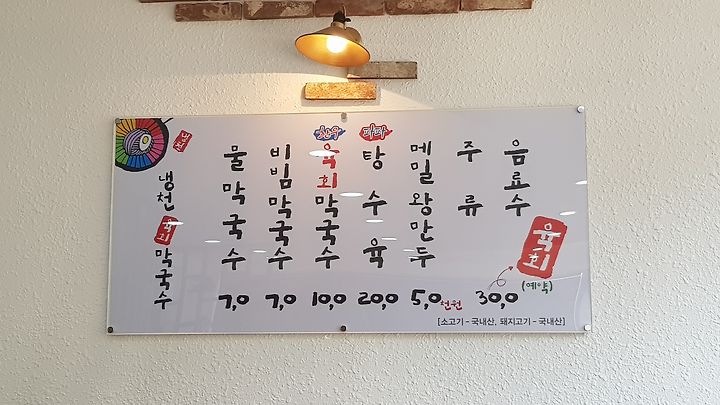 냉천
냉천 육회 막국수
물막국수 7,0
비빔막국수 7,0
한우
육회막국수 10,0
파타
탕수육 20,0
메밀왕만두 5,0천원
주류
음료수
육회
(예약)
30,0
[소고기 - 국내산, 돼지고기 - 국내산]